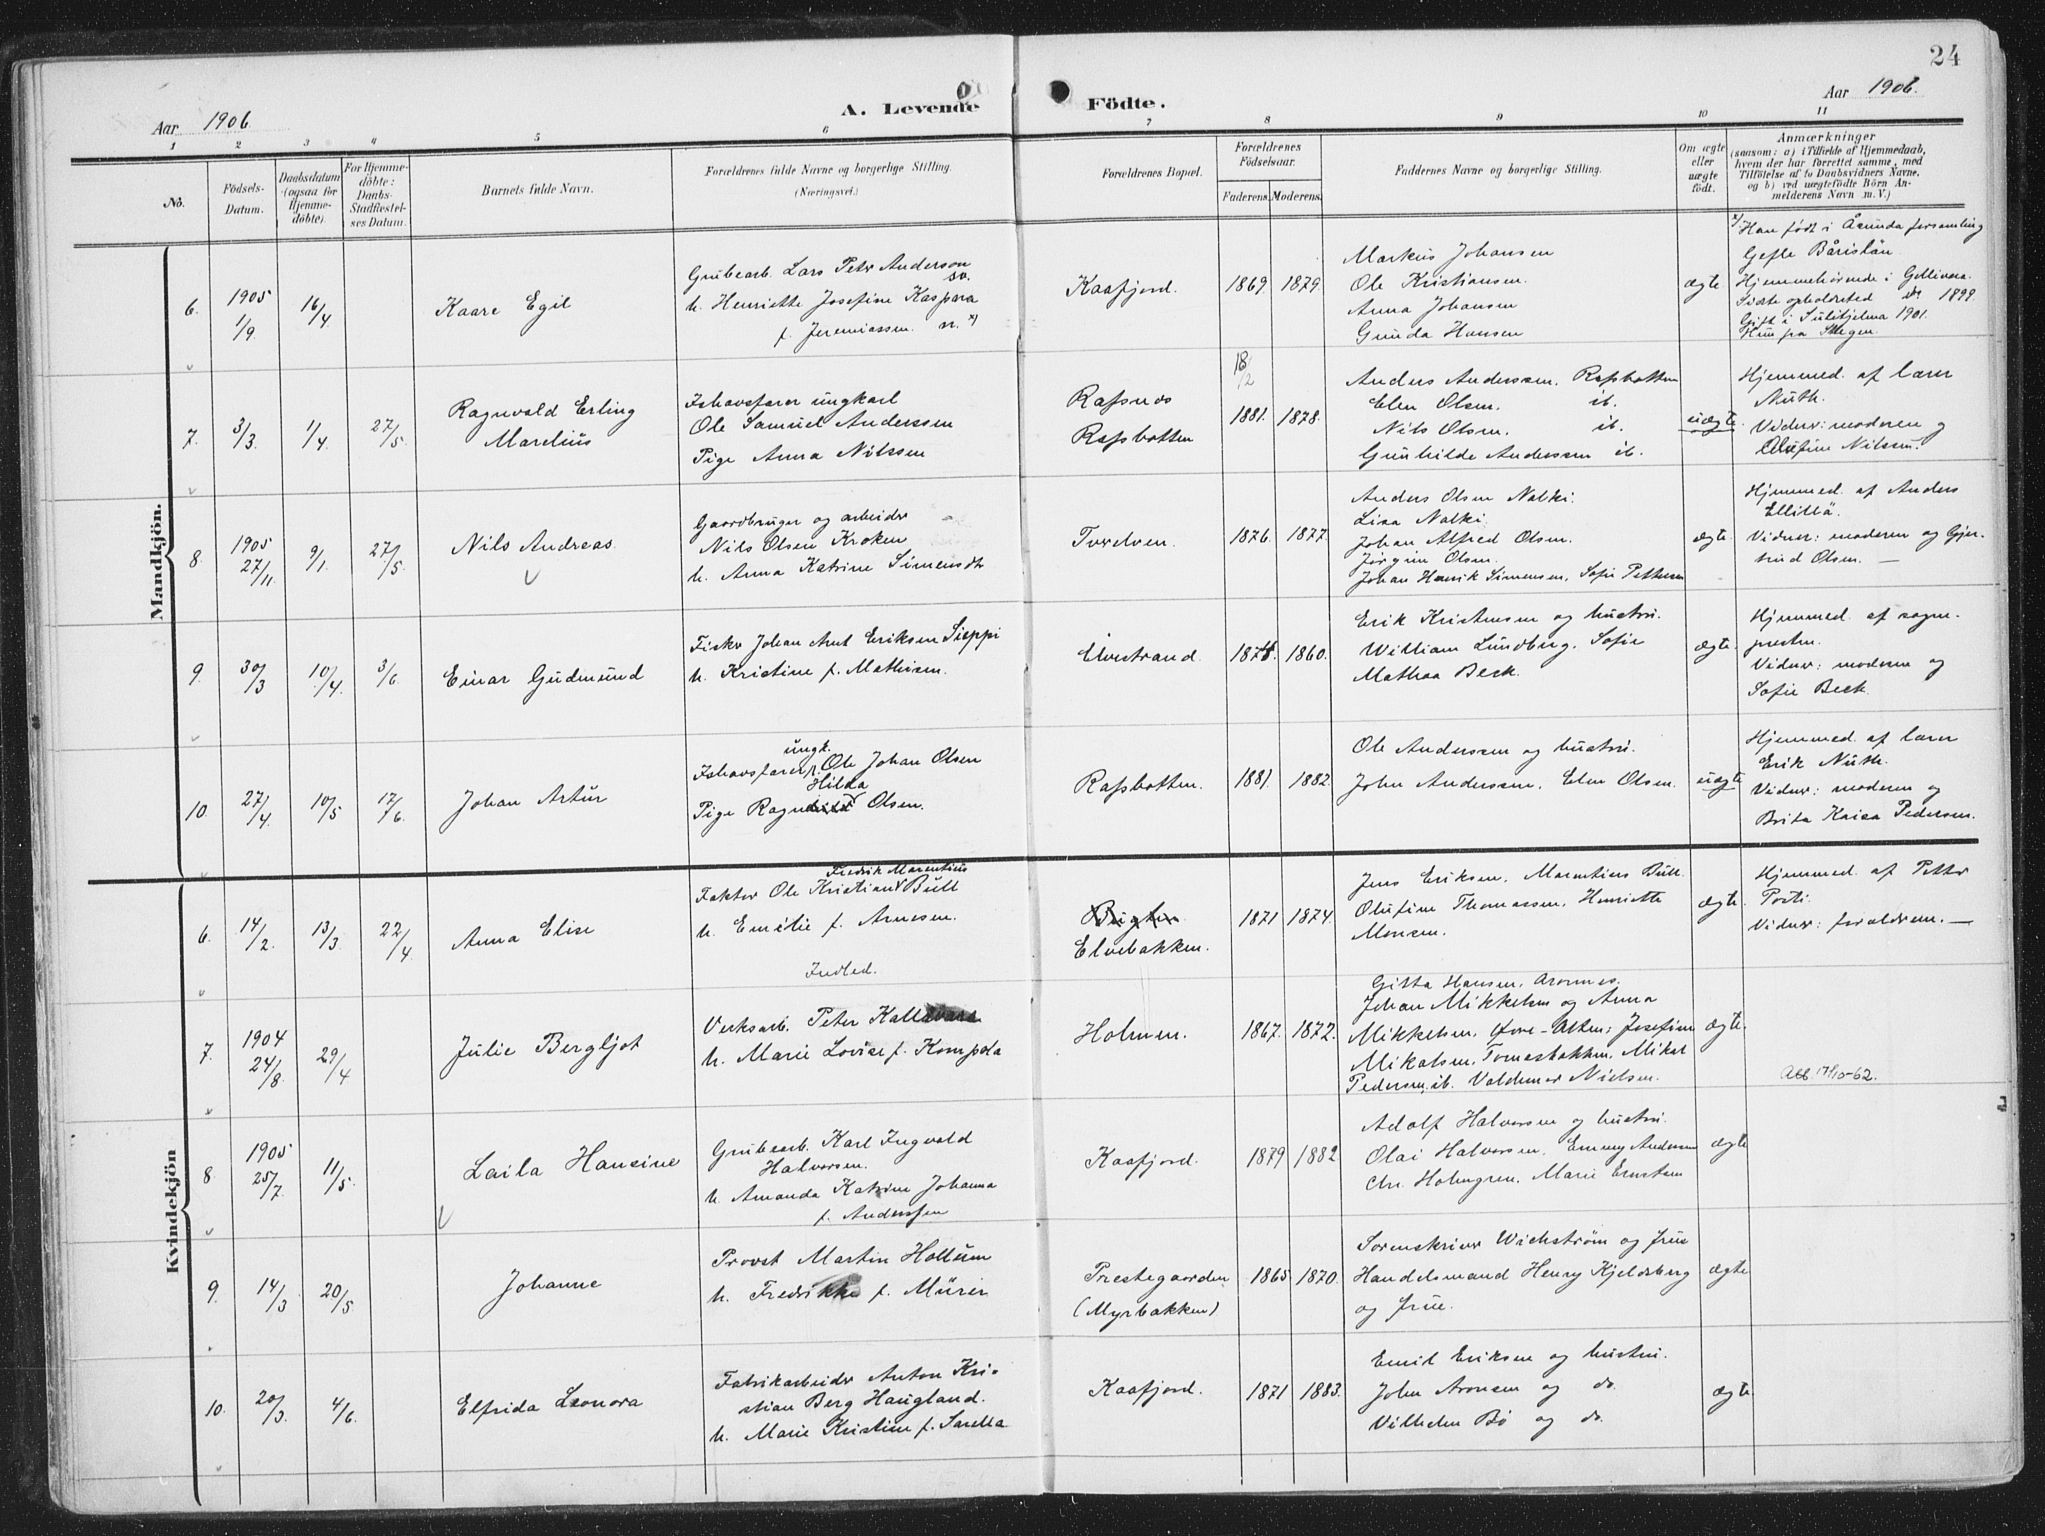 24
Aar 1906
A. Levende
Födte.
Aar 1906.
1 2 3 4 5 6 7 8 9 10 11
No.
Födsels-
Datum.
Daabsdatum
(ogsaa for
Hjemme-
döbte).
For Hjemme-
döbte:
Daabs-
Stadfæstel-
ses Datum.
Barnets fulde Navn.
Forældrenes fulde Navne og borgerlige Stilling.
(Næringsvei.)
Forældrenes Bopæl.
Forældrenes
Födselsaar.
Faderens.
Moderens.
Faddernes Navne og borgerlige Stilling.
Om ægte
eller
uægte
födt.
Anmærkninger
(saasom: a) i Tilfælde af Hjemmedaab,
hvem der har forrettet samme, med
Tilföielse af to Daabsvidners Navne,
og b) ved uægtefödte Börn An-
melderens Navn m. V.)
Mandkjön.
6.
1905
1/9.
16/4.
Kaare Egil
Grubearb. Lars Petr Anderson
sv.
h. Henriette Josefine Kaspara
f. Jeremiassen n. x)
Kaafjord.
1869. 1879.
Markus Johansen
Ole Kristiansen.
Anna Johansen
Gunda Hansen
ægte
x) Han født i forsamling
Gefle
Hjemmehörende i Gellivara.
Sidste opholdssted do 1899.
Gift i Sulitjelma 1901.
Hun fra
7.
3/3.
1/4.
27/5.
Ragnvald Erling
Marelius
Ishavsfarer ungkarl
Ole Samuel Anderssen
Pige Anna Nilssen
Rafsnes
Rafsbotten
18/2
1881. 1878.
Anders Anderssen. Rafsbotten
Elen Olsen. ib.
Nils Olsen. ib.
Gunhilde Anderssen ib.
uægte.
Hjemmed. af lærer
Nuth.
Vidner: moderen og
Olufine Nilssen.
8.
1905
27/11.
9/1.
27/5.
Nils Andreas.
Gaardbruger og arbeider
Nils Olsen Kroken
h. Anna Katrine Simensdtr
Tverelven.
1876. 1877.
Anders Olsen Nalki.
Lisa Nalki.
Johan Alfred Olsen.
Jörgine Olsen.
Johan Henrik Simensen. Sofie Pettersen
ægte.
Hjemmed. af Anders
Ellillä.
Vidner: moderen og Gjer-
trud Olsen. —
9.
30/3
10/4.
3/6.
Einar Gudmund
Fisker Johan Arnt Eriksen Sieppi
h. Kristine f. Mathisen.
Elvestrand.
1874. 1860.
Erik Kristensen og hustru.
William Lundberg. Sofie
Mathea Beck.
ægte.
Hjemmed. af sogne-
presten.
Vidner: moderen og
Sofie Beck.
10.
27/4.
10/5
17/6.
Johan Artur
ungk.
Ishavsfarer Ole Johan Olsen
Hilda
Pige Ragnhild Olsen.
Rafsbotten.
1881. 1882.
Ole Anderssen og hustru.
John Anderssen. Elen Olsen.
uægte
Hjemmed. af lærer
Erik Nuth.
Vidner: moderen og
Brita Kaisa Pedersen.
Kvindekjön
6.
14/2.
13/3
22/4
Anna Elise
Fredrik Marentius
Faktor Ole Kristian Bull
h. Emilie f. Arnesen.
Elvebakken.
1871 1874.
Jens Eriksen. Marentius Bull.
Olufine Thomassen. Henriette
Monsen.
ægte.
Hjemmed. af Petter
Posti.
Vidner: foraldrene. —
7.
1904
24/8.
29/4
Julie Bergljot
Indled.
Verksarb. Peter Kallavara
h. Marie Lovise f. Kompela
Holmen.
1867. 1872.
Gitta Hansen, Aronnes.
Johan Mikkelsen og Anna
Mikkelsen. Øvre-Alten; Josefine
Mikalsen. Tomasbakken. Mikal
Pedersen, ib. Valdemar Nielsen.
ægte.
Att. 17/10-62.
8.
1905
25/7.
11/5.
Laila Hansine
Grubearb. Karl Ingvald
Halvorsen.
h. Amanda Katrine Johanna
f. Anderssen
Kaafjord.
1879 1882.
Adolf Halvorsen og hustru.
Olai Halvorsen. Emmy Andersen
Chr. Holmgren. Marie Ernstsen
ægte
9.
14/3
20/5.
Johanne
Provst Martin Hollum
h. Fredrikke f. Mürer
Prestegaarden
(Myrbakken)
1865 1870.
Sorenskriver Wichstrøm og frue
Handelsmand Henry Kjeldsberg
og frue.
ægte
10.
20/3.
4/6.
Elfrida Leonora
Fabrikarbeider Anton Kri-
stian Berg Haugland.
h. Marie Kristine f. Sarella
Kaafjord.
1871 1883.
Emil Eriksen og hustru.
John Aronsen og do.
Vilhelm Bö og do.
ægte